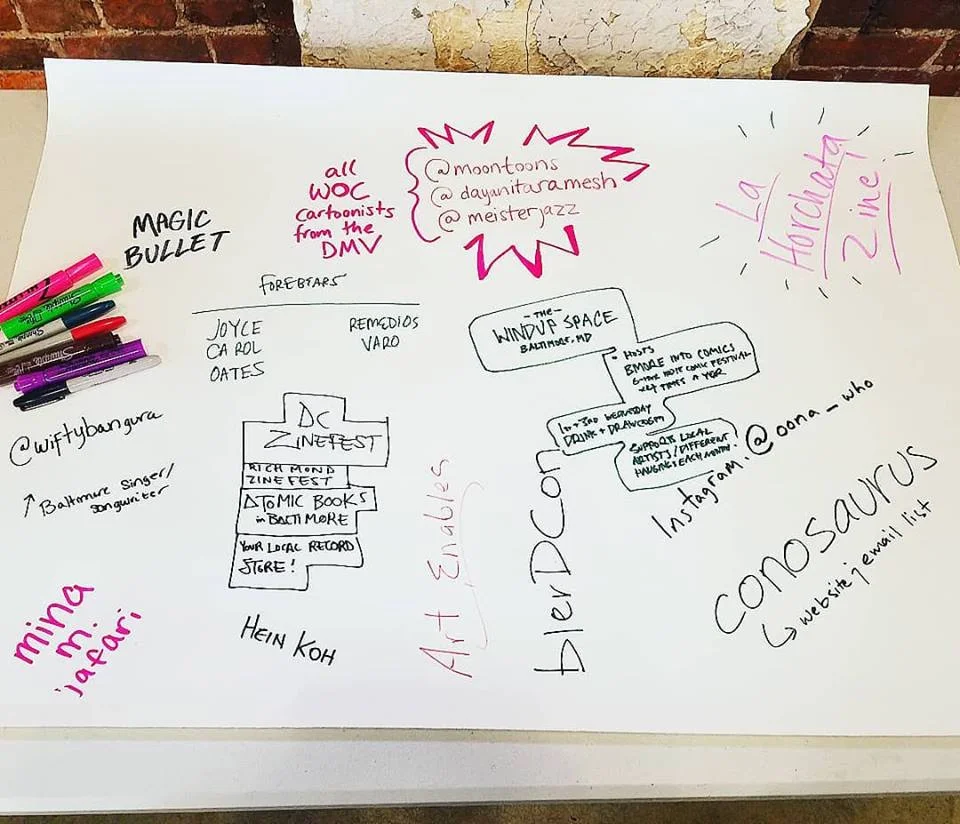 MAGIC
BULLET
all
WOC
cartoonists
from the
DMV
@moontoons
@dayanitaramesh
@meisterjazz
La
Horchata
Zine!
FOREBEARS
JOYCE
CAROL
OATES
REMEDIOS
VARO
-THE-
WINDUP SPACE
BALTIMORE, MD
• HOSTS
BMORE INTO COMICS
COMIC FESTIVAL
TIMES A YEAR
1st + 3RD WEDNSDAY
DRINK + DRAW
SUPPORTS LOCAL
ARTISTS/DIFFERENT
HANGINGS EACH MONTH!
@wiftybangura
↑ Baltimore Singer/
songwriter
DC
ZINEFEST
RICHMOND
ZINEFEST
ATOMIC BOOKS
in BALTIMORE
YOUR LOCAL RECORD
STORE!
HEIN KOH
mina
m.
jafari
Art Enables
blerDCon
Instagram: @oona_who
conosaurus
↳ website; email list